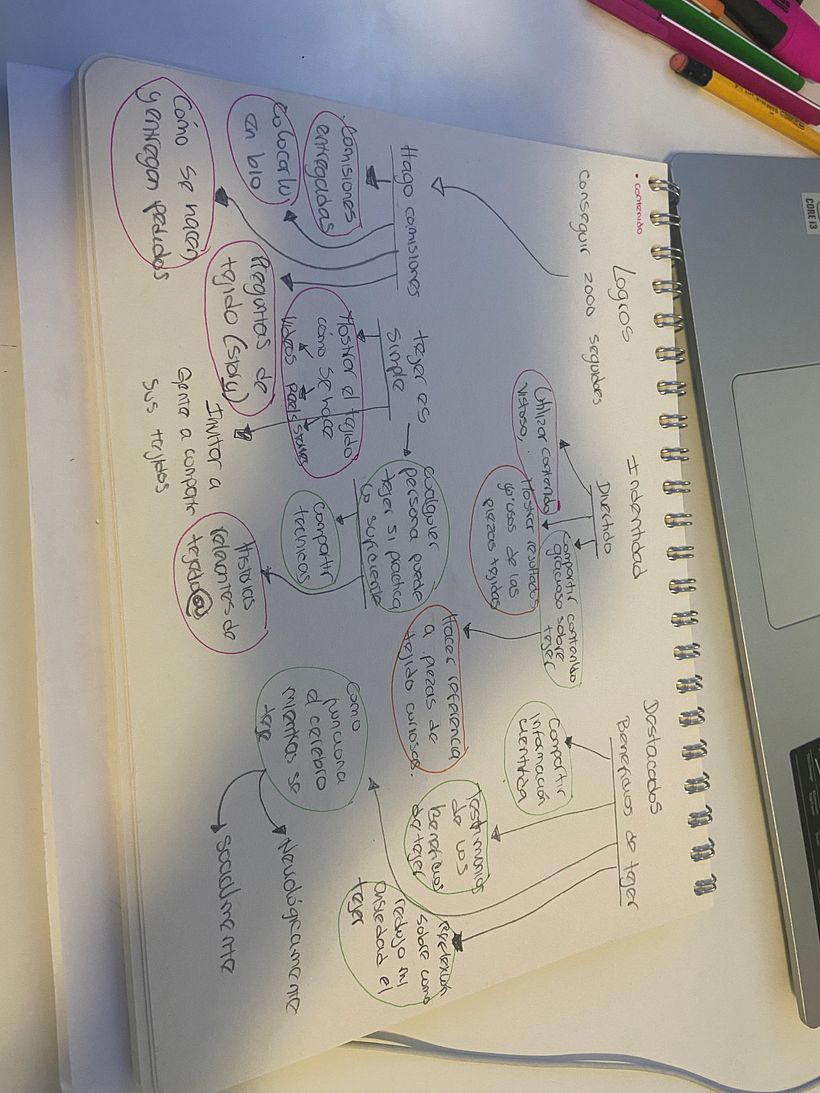 • contenido
Logros
Conseguir 2000 seguidores
Hago comisiones
. Comisiones
entregadas
colocarlo
en bio
Cómo se hacen
y entregan pedidos
Preguntas de
tejido (story)
tejer es
simple
Mostrar el tejido
cómo se hace
videos reels stories
Invitar a
Gente a compartir
sus tejidos
cualquier
persona puede
tejer si practica
lo suficiente
Compartir
técnicas
Historias
relevantes de
tejedor@s
Indentidad
Divertido
Utilizar contenido
vistoso, .
Mostrar resultados
graciosos de las
piezas tejidas
Compartir contenido
gracioso sobre
tejer
Hacer referencia
a piezas de
tejido curiosas.
Destacados
Beneficios de tejer
Compartir
información
científica
Testimonios
de los
Beneficios
de tejer
Como
funciona
el cerebro
mientras se
teje
Neurológicamente
socialmente
reflexión
sobre como
redujo mi
ansiedad el
tejer
CORE i3